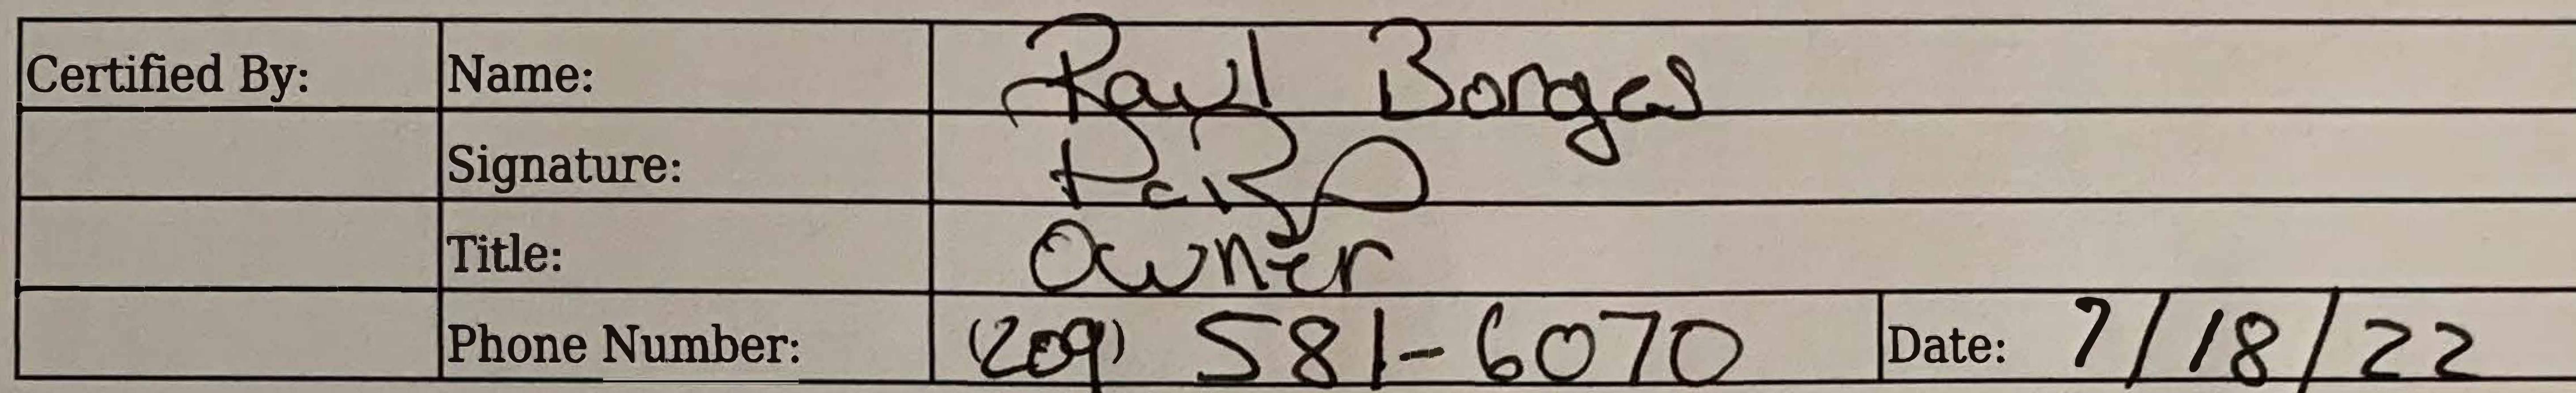 Certified By: Name: Raul Borges
Signature:
Title: Owner
Phone Number: (209) 581-6070 Date: 7/18/22